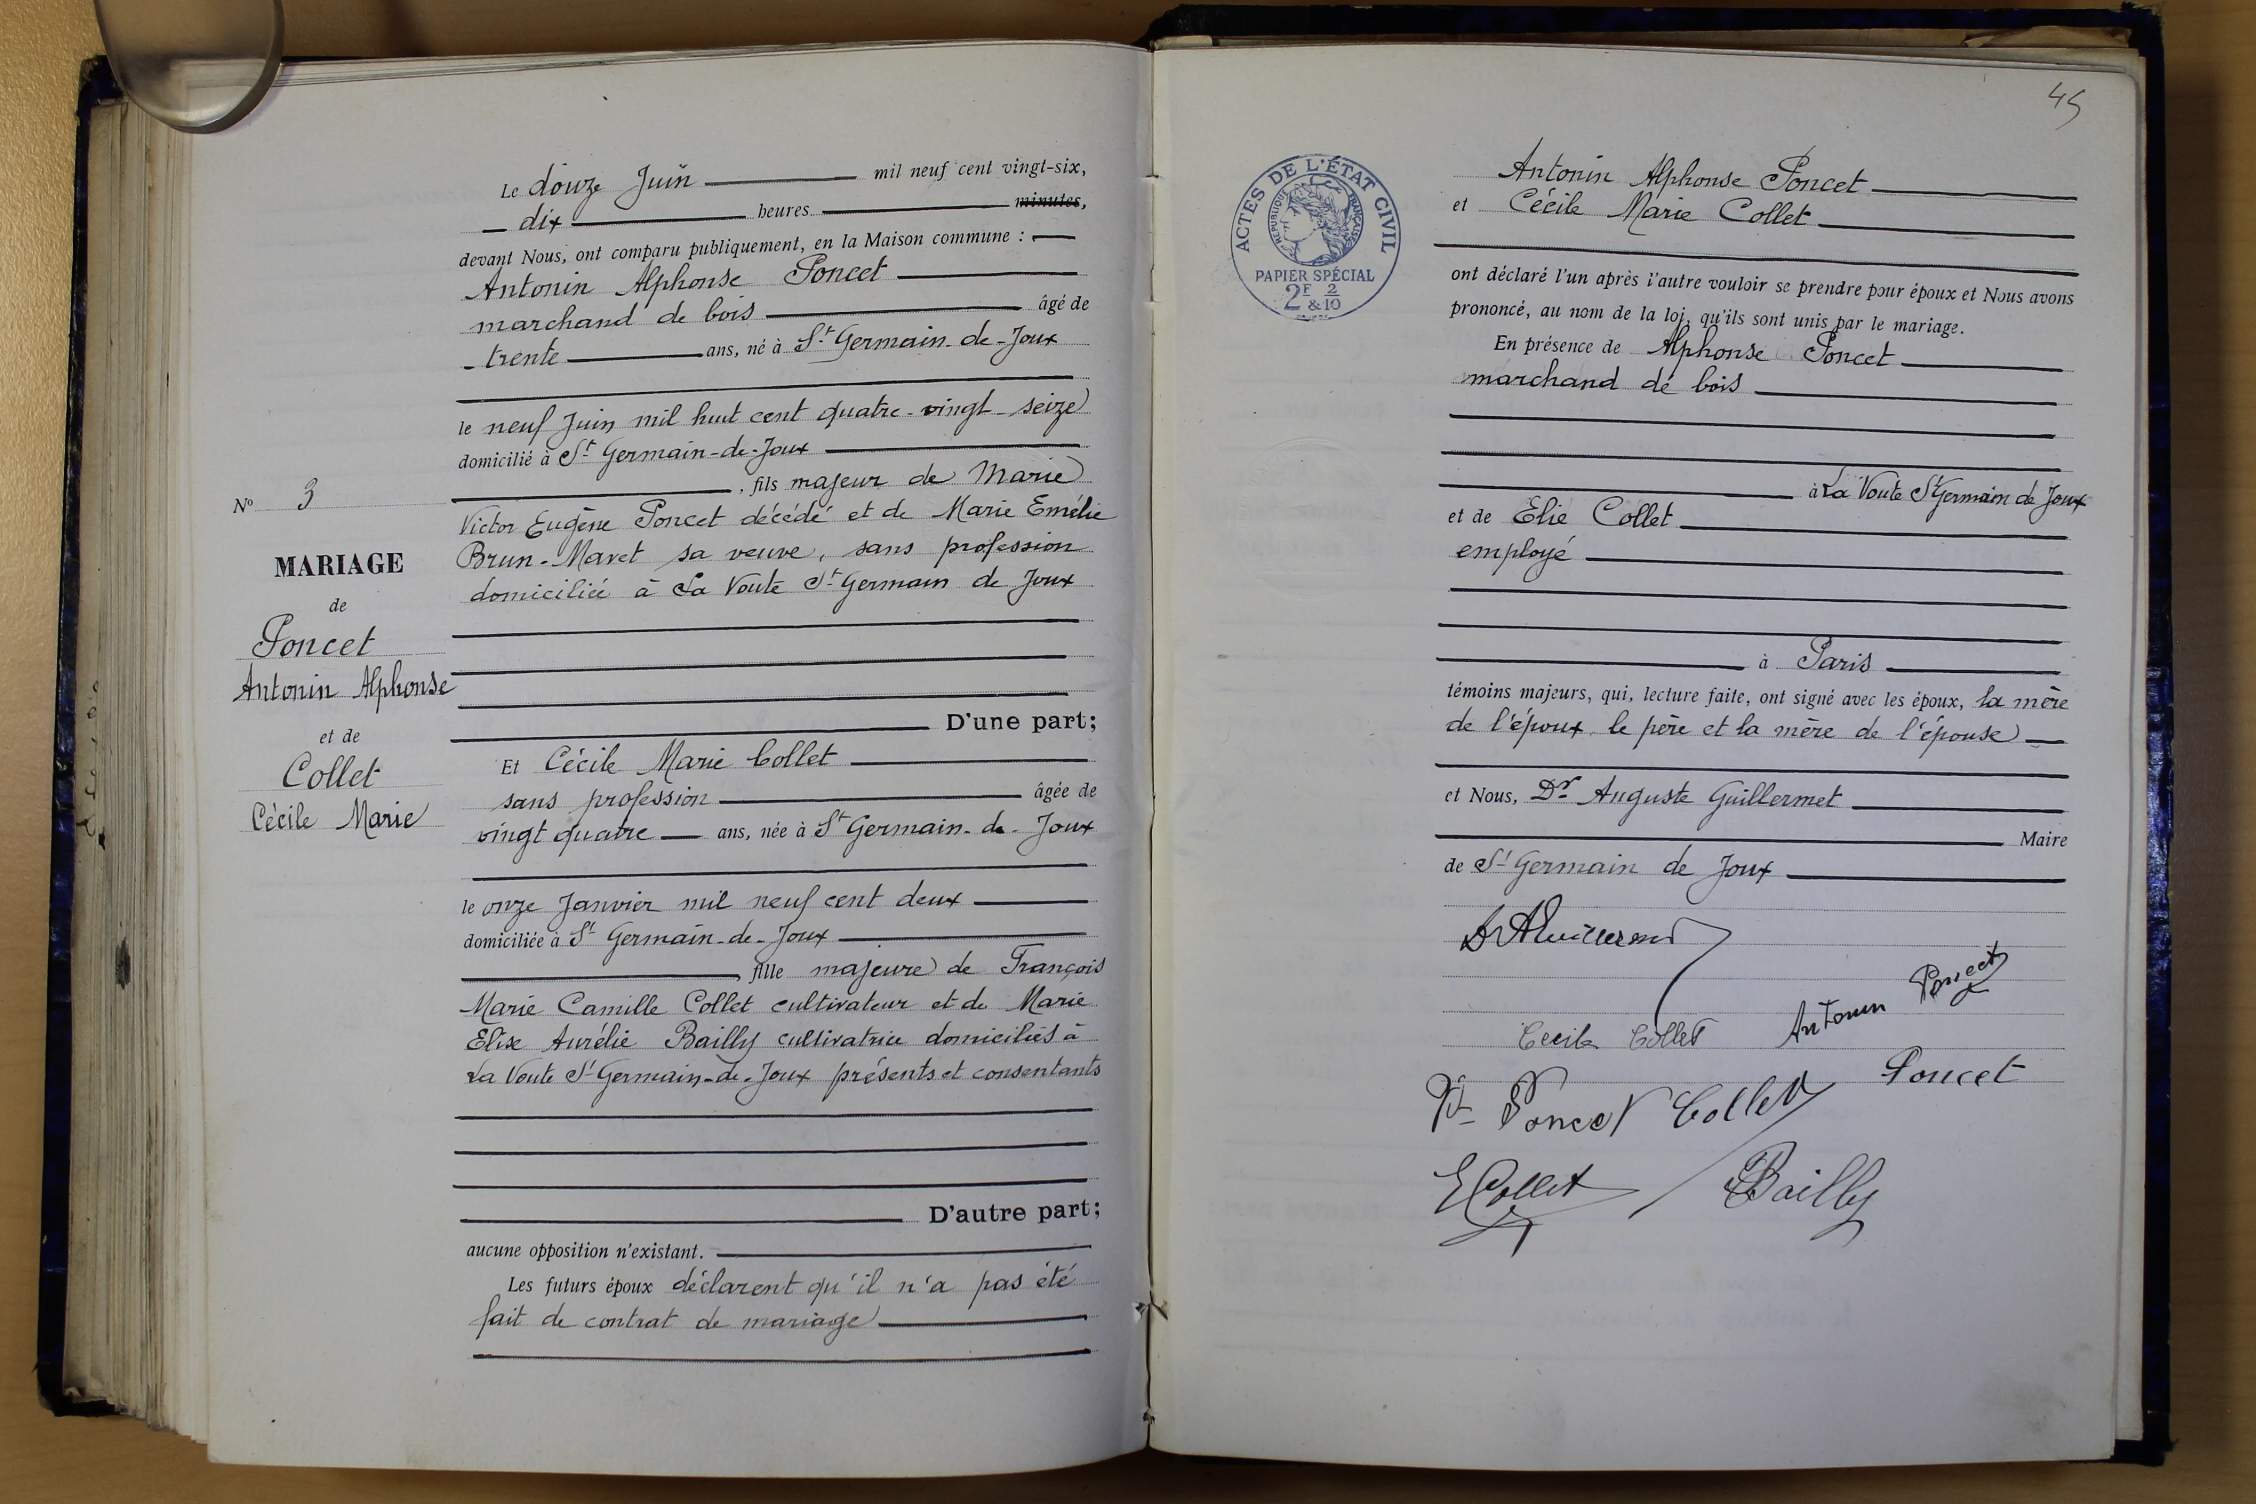 Le douze Juin mil neuf cent vingt-six,
dix heures minutes,
devant Nous, ont comparu publiquement, en la Maison commune :
Antonin Alphonse Poncet
marchand de bois âgé de
trente ans, né à St Germain-de-Joux
le neuf Juin mil huit cent quatre-vingt-seize
domicilié à St Germain-de-Joux
, fils majeur de Marie
Victor Eugène Poncet décédé et de Marie Emélie
Brun-Maret sa veuve, sans profession
domiciliée à La Voute St Germain de Joux
D'une part;
Et Cécile Marie Collet
sans profession âgée de
vingt quatre ans, née à St Germain-de-Joux
le onze Janvier mil neuf cent deux
domiciliée à St Germain-de-Joux
, fille majeure de François
Marie Camille Collet cultivateur et de Marie
Elise Aurélie Bailly cultivatrice domiciliés à
La Voute St Germain-de-Joux présents et consentants
D'autre part;
aucune opposition n'existant.
Les futurs époux déclarent qu'il n'a pas été
fait de contrat de mariage
No 3
MARIAGE
de
Poncet
Antonin Alphonse
et de
Collet
Cécile Marie
45
ACTES DE L'ÉTAT CIVIL
RÉPUBLIQUE FRANÇAISE
PAPIER SPÉCIAL
2F & 2/10
Antonin Alphonse Poncet
et Cécile Marie Collet
ont déclaré l'un après l'autre vouloir se prendre pour époux et Nous avons
prononcé, au nom de la loi, qu'ils sont unis par le mariage.
En présence de Alphonse Poncet
marchand de bois
à La Voute St Germain de Joux
et de Elie Collet
employé
à Paris
témoins majeurs, qui, lecture faite, ont signé avec les époux, la mère
de l'époux, le père et la mère de l'épouse
et Nous, Dr Auguste Guillermet
Maire
de St Germain de Joux
Dr A Guillermet
Antonin Poncet
Cecile Collet
Poncet
Vve Poncet Collet
E Collet
Bailly